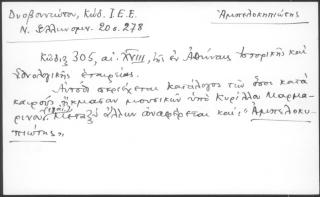 Δυοβουνιώτου, Κώδ. Ι.Ε.Ε. Ἀμπελοκηπιώτης
Ν. Ἑλληνομν. 20 σ. 278
Κῶδιξ 305, αἰ. XVIII, τῆς ἐν Ἀθήναις Ἱστορικῆς καὶ
Ἐθνολογικῆς ἑταιρείας.
Αὐτόθι περιέχεται κατάλογος τῶν ὅσοι κατὰ
καιροὺς ἤκμασαν μουσικῶν ὑπὸ Κυρίλλου Μαρμα-
ρινοῦ. Μεταξὺ ἄλλων ἀναφέρεται καὶ: «Ἀμπελοκη-
πιώτης».